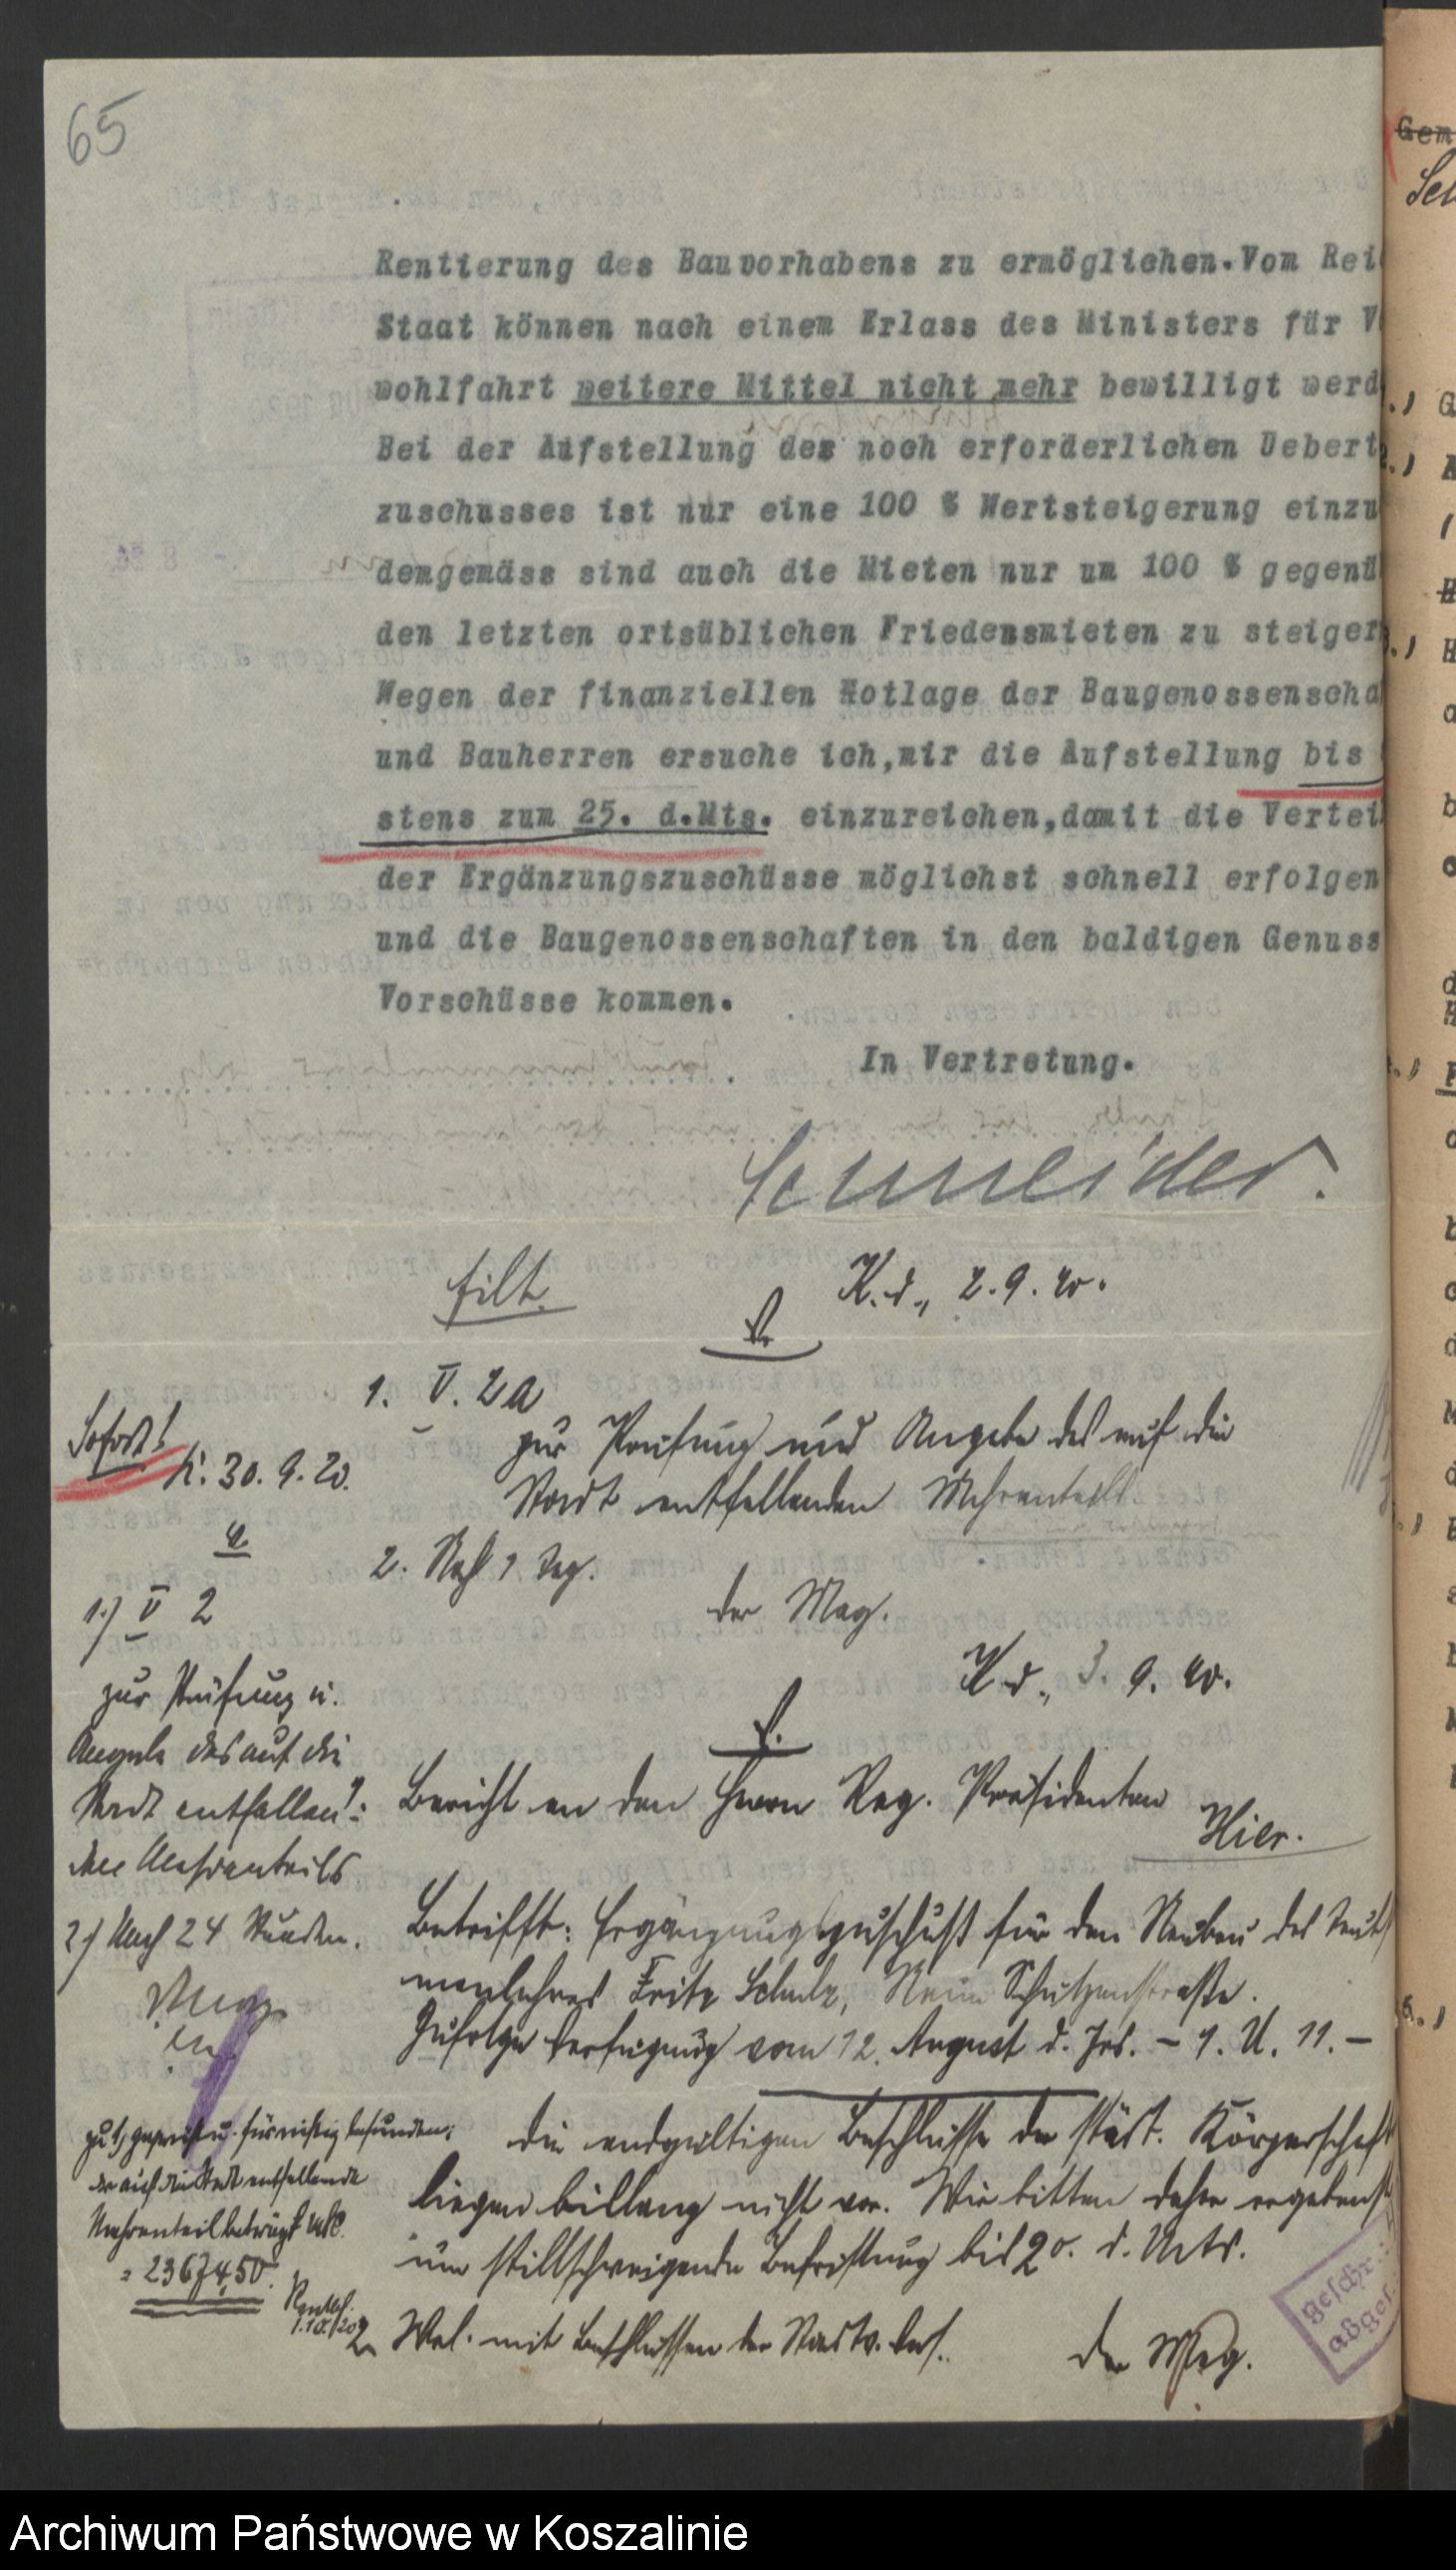 65
Rentierung des Bauvorhabens zu ermöglichen.Vom Rei
Staat können nach einem Erlass des Ministers für V
wohlfahrt weitere Mittel nicht mehr bewilligt werd
Bei der Aufstellung des noch erforderlichen Uebert
zuschusses ist nur eine 100 % Wertsteigerung einzu
demgemäss sind auch die Mieten nur um 100 % gegenü
den letzten ortsüblichen Friedensmieten zu steiger
Wegen der finanziellen Notlage der Baugenossenscha
und Bauherren ersuche ich,mir die Aufstellung bis
stens zum 25. d.Mts. einzureichen,damit die Vertei
der Ergänzungszuschüsse möglichst schnell erfolgen
und die Baugenossenschaften in den baldigen Genuss
Vorschüsse kommen.
In Vertretung.
Schneider.
Eilt.
K. d., 2.9.20.
1. V. 2a
zur Prüfung und Angabe des auf die
Stadt entfallenden Mehranteils
2. Nach 1 Tag.
Der Mag.
K. d., 3. 9. 20.
Sofort!
K. 30. 9. 20.
1.) V 2
zur Prüfung u.
Angabe des auf die
Stadt entfallen=
den Mehranteils
2.) Nach 24 Stunden.
Mag.
zu 1) geprüft u. für richtig befunden.
der auf die Stadt entfallende
Mehranteil beträgt
= 23674,50
1.10.20
Bericht an den Herrn Reg. Präsidenten
Hier.
Betrifft: Ergänzungszuschuß für den Neubau des
Fritz Schulz, Neue Schützenstraße.
Zufolge Verfügung vom 12. August d. Jrs. – 1. U. 11. –
Die endgültigen Beschlüsse der städt. Körperschaft
liegen bislang nicht vor. Wir bitten daher ergebenst
um stillschweigende Befristung bis 20. d. Mts.
2. Wvl. mit Beschlüssen der Stadtv. Vers.
Der Mag.
geschr.:
abges.
Gem
Sch
Archiwum Państwowe w Koszalinie